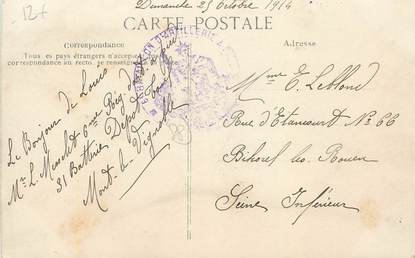 12+
Dimanche 25 Octobre 1914
CARTE POSTALE
Correspondance
Tous les pays étrangers n'acceptent
correspondance au recto, se renseigner
Adresse
Le Bonjour de Louis
Mr L. 6ème Rég. d'Art. à pied
31 Batterie Dépot
Mont-de-Vignolle
Mme E. Leblond
Rue d'Etancourt No 66
Bihorel les Rouen
Seine Inférieur